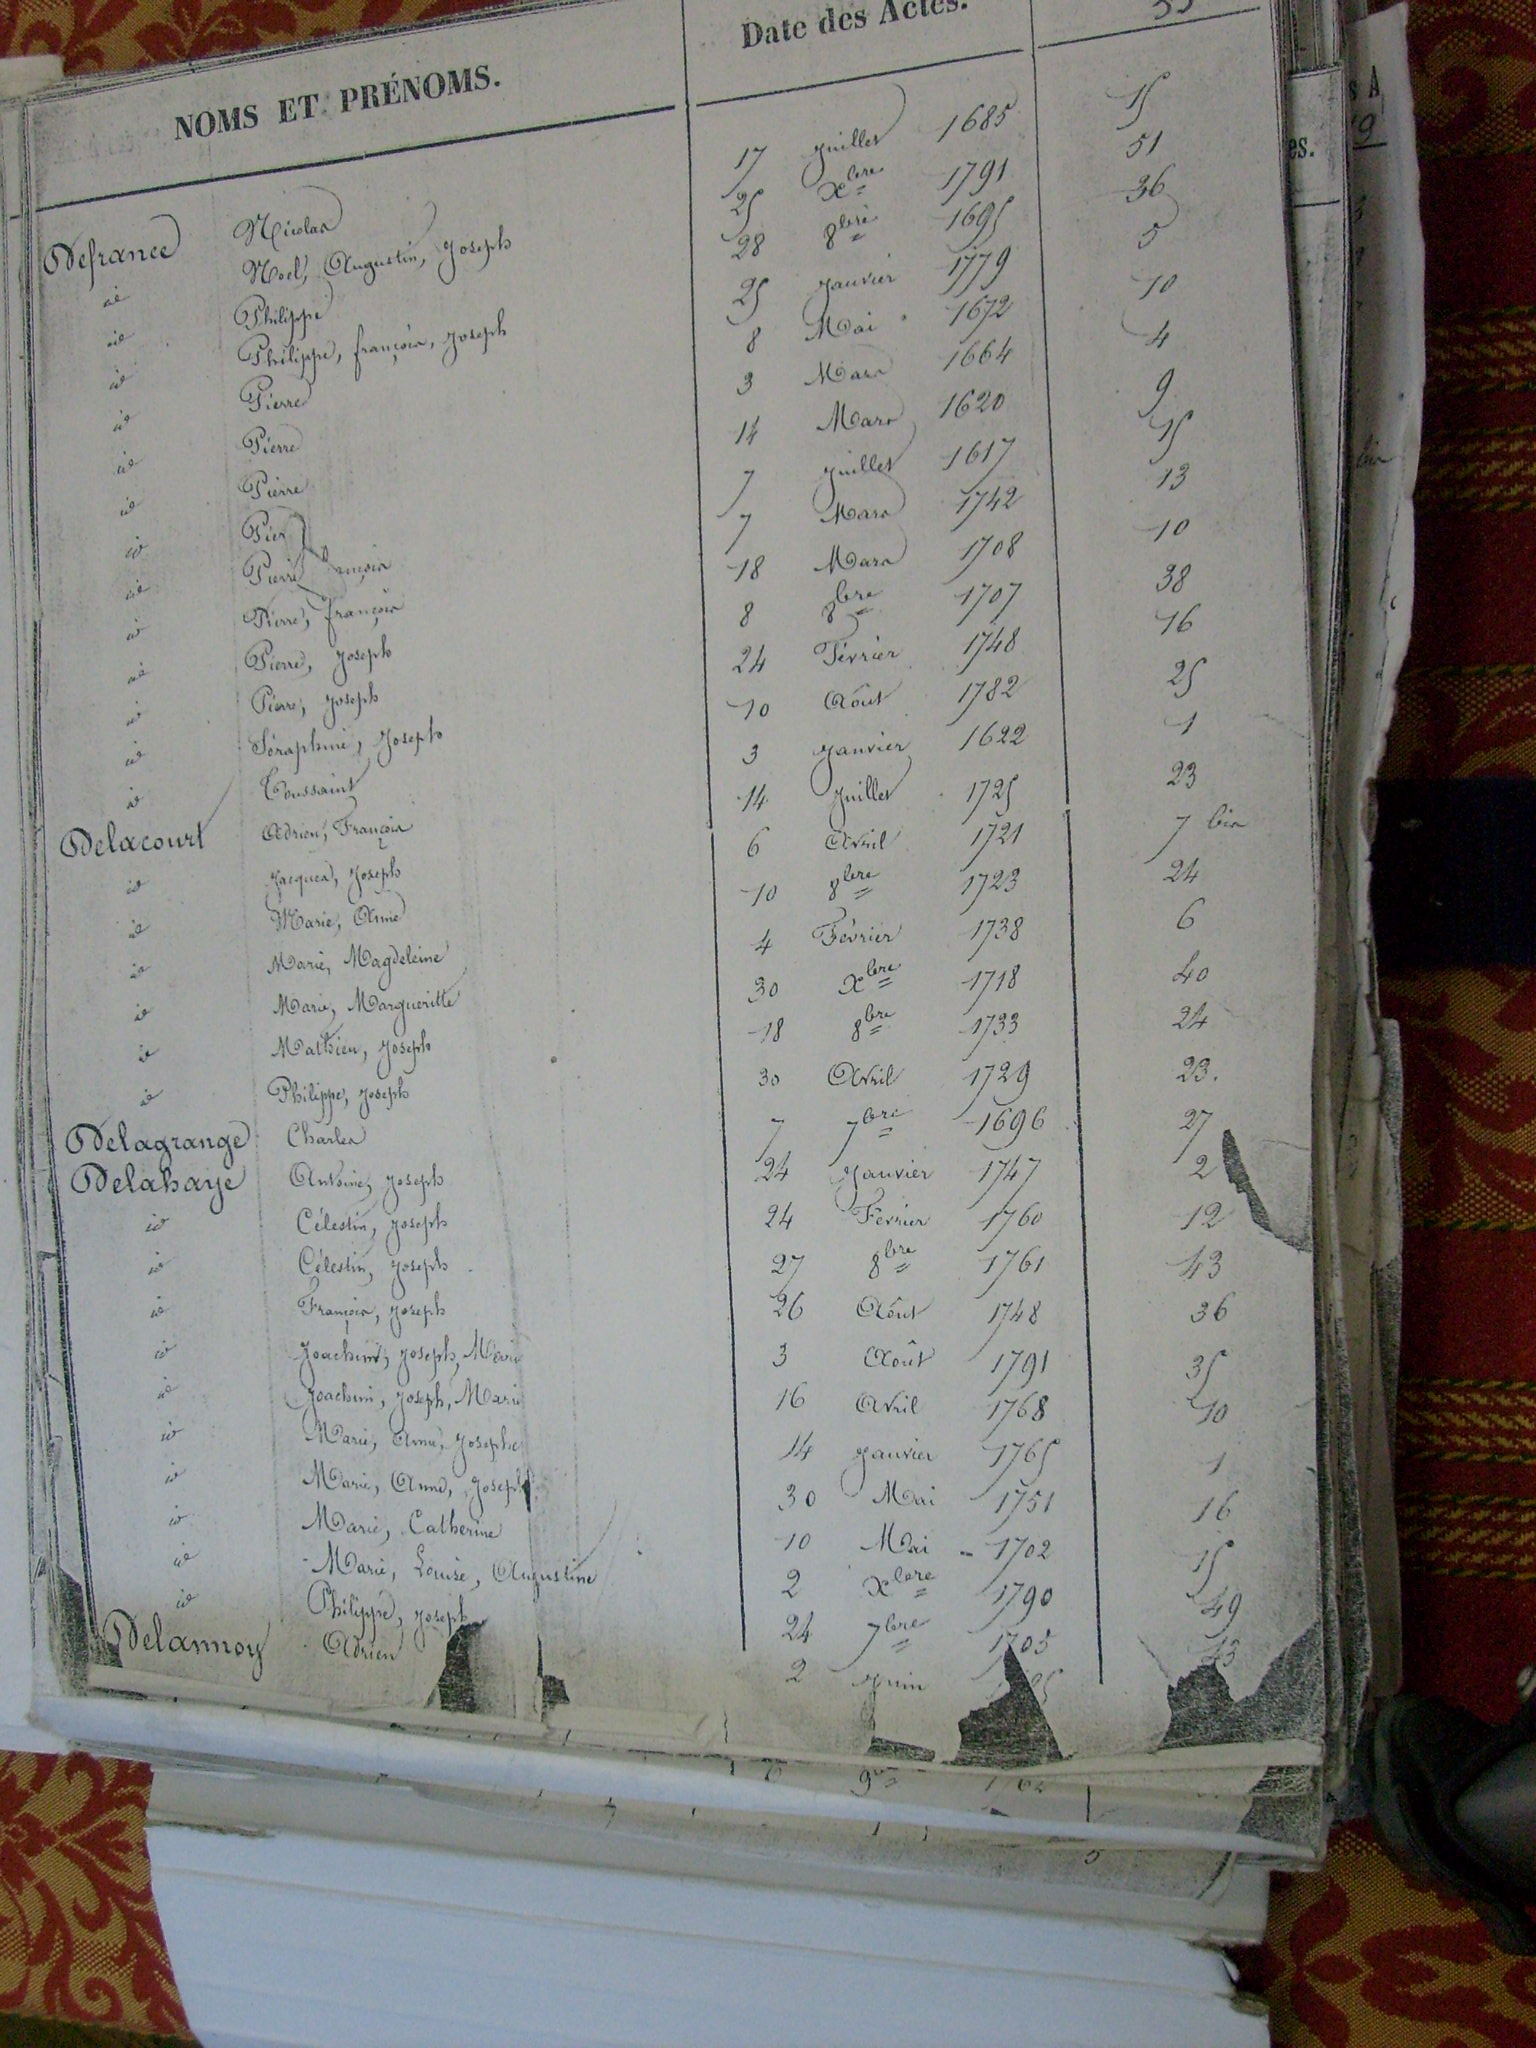 NOMS ET PRÉNOMS. Date des Actes.
Defrance Nicolas 17 Juillet 1685 15
id Noel, Augustin, Joseph 25 Xbre 1791 51
id Philippe 28 8bre 1695 36
id Philippe, françois, Joseph 25 Janvier 1779 5
id Pierre 8 Mai 1672 10
id Pierre 3 Mars 1664 4
id Pierre 14 Mars 1620 9
id Pier 7 Juillet 1617 15
id Pierre ançois 7 Mars 1742 13
id Pierre, françois 18 Mars 1708 10
id Pierre, Joseph 8 8bre 1707 38
id Pierre, Joseph 24 Février 1748 16
id Séraphin, Joseph 10 Août 1782 25
id Toussaint 3 Janvier 1622 1
Delacourt Adrien, François 14 Juillet 1725 23
id Jacques, Joseph 6 Avril 1721 7 bis
id Marie, Anne 10 8bre 1723 24
id Marie, Magdeleine 4 Février 1738 6
id Marie, Margueritte 30 Xbre 1718 40
id Mathieu, Joseph 18 8bre 1733 24
id Philippe, Joseph 30 Avril 1729 23.
Delagrange Charles 7 7bre 1696 27
Delahaye Antoine, Joseph 24 Janvier 1747 2
id Célestin, Joseph 24 Février 1760 12
id Célestin, Joseph 27 8bre 1761 43
id François, Joseph 26 Août 1748 36
id Joachim, Joseph, Marie 3 Août 1791 35
id Joachim, Joseph, Marie 16 Avril 1768 10
id Marie, Anne, Josephe 14 Janvier 1765 1
id Marie, Anne, Joseph 30 Mai 1751 16
id Marie, Catherine 10 Mai 1702 15
id Marie, Louise, Augustine 2 Xbre 1790 49
id Philippe, Joseph 24 7bre 1705 43
Delannoy Adrien 2 Juin